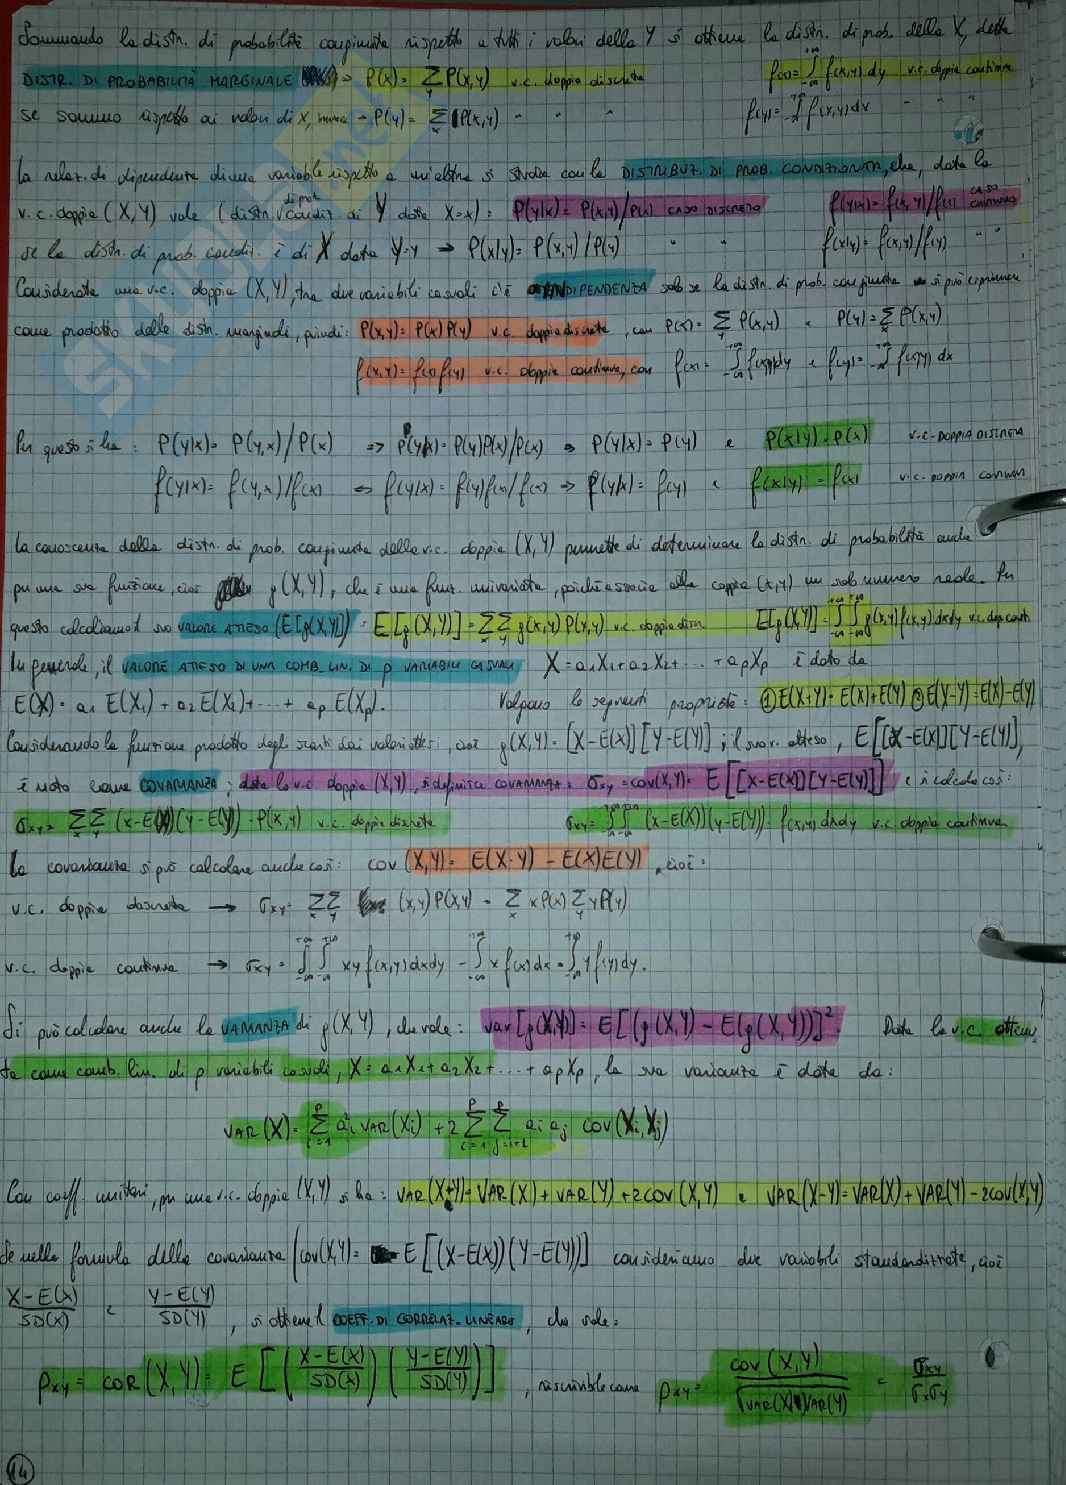 Sommando la distr. di probabilità congiunta rispetto a tutti i valori della Y si ottiene la distr. di prob. della X, detta
DISTR. DI PROBABILITÀ MARGINALE → P(x) = Σ_y P(x,y) v.c. doppia discreta f(x) = ∫_{-∞}^{+∞} f(x,y) dy v.c. doppia continua
se sommo rispetto ai valori di X, invece → P(y) = Σ_x P(x,y) " " " f(y) = ∫_{-∞}^{+∞} f(x,y) dx " " "
La relaz. di dipendenza di una variabile rispetto a un'altra si studia con la DISTRIBUZ. DI PROB. CONDIZIONATA, che, data la
v.c. doppia (X,Y) vale (distr. di prob. condiz. di Y data X=x): P(y|x) = P(x,y)/P(x) CASO DISCRETO f(y|x) = f(x,y)/f(x) CASO CONTINUO
se la distr. di prob. condiz. è di X data Y=y → P(x|y) = P(x,y)/P(y) " " f(x|y) = f(x,y)/f(y) " "
Considerata una v.c. doppia (X,Y), tra due variabili casuali c'è INDIPENDENZA solo se la distr. di prob. congiunta si può esprimere
come prodotto delle distr. marginali, quindi: P(x,y) = P(x) P(y) v.c. doppia discreta, con P(x) = Σ_y P(x,y) e P(y) = Σ_x P(x,y)
f(x,y) = f(x) f(y) v.c. doppia continua, con f(x) = ∫_{-∞}^{+∞} f(x,y) dy e f(y) = ∫_{-∞}^{+∞} f(x,y) dx
Per questo si ha: P(y|x) = P(y,x)/P(x) ⇒ P(y|x) = P(y)P(x)/P(x) ⇒ P(y|x) = P(y) e P(x|y) = P(x) v.c. DOPPIA DISCRETA
f(y|x) = f(y,x)/f(x) ⇒ f(y|x) = f(y)f(x)/f(x) ⇒ f(y|x) = f(y) e f(x|y) = f(x) v.c. DOPPIA CONTINUA
La conoscenza della distr. di prob. congiunta della v.c. doppia (X,Y) permette di determinare la distr. di probabilità anche
per una sua funzione, cioè g(X,Y), che è una funz. univariata, poiché associa alla coppia (x,y) un solo numero reale. Per
questo calcoliamo il suo VALORE ATTESO (E[g(X,Y)]): E[g(X,Y)] = Σ_x Σ_y g(x,y) P(x,y) v.c. doppia discr. E[g(X,Y)] = ∫_{-∞}^{+∞} ∫_{-∞}^{+∞} g(x,y) f(x,y) dxdy v.c. dop. cont.
In generale, il VALORE ATTESO DI UNA COMB. LIN. DI p VARIABILI CASUALI X = a1X1 + a2X2 + ... + apXp è dato da
E(X) = a1 E(X1) + a2 E(X2) + ... + ap E(Xp). Valgono le seguenti proprietà: ① E(X+Y) = E(X) + E(Y) ② E(X-Y) = E(X) - E(Y)
Considerando la funzione prodotto degli scarti dai valori attesi, cioè g(X,Y) = [X-E(X)][Y-E(Y)]; il suo v. atteso, E[[X-E(X)][Y-E(Y)]],
è noto come COVARIANZA; data la v.c. doppia (X,Y), si definisce COVARIANZA: σxy = cov(X,Y) = E[[X-E(X)][Y-E(Y)]] e si calcola così:
σxy = Σ_x Σ_y (x-E(X))(y-E(Y)) · P(x,y) v.c. doppia discreta σxy = ∫_{-∞}^{+∞} ∫_{-∞}^{+∞} (x-E(X))(y-E(Y)) · f(x,y) dxdy v.c. doppia continua
La covarianza si può calcolare anche così: cov(X,Y) = E(X·Y) - E(X)E(Y), cioè:
v.c. doppia discreta → σxy = Σ_x Σ_y (x,y) P(x,y) - Σ_x x P(x) Σ_y y P(y)
v.c. doppia continua → σxy = ∫_{-∞}^{+∞} ∫_{-∞}^{+∞} xy f(x,y) dxdy - ∫_{-∞}^{+∞} x f(x) dx · ∫_{-∞}^{+∞} y f(y) dy.
Si può calcolare anche la VARIANZA di g(X,Y), che vale: var[g(X,Y)] = E[(g(X,Y) - E(g(X,Y))]² Data la v.c. ottenu
ta come comb. lin. di p variabili casuali, X = a1X1 + a2X2 + ... + apXp, la sua varianza è data da:
VAR(X) = Σ_{i=1}^{p} a²i VAR(Xi) + 2 Σ_{i=1}^{p} Σ_{j=i+1}^{p} ai aj cov(Xi, Xj)
Con coeff. unitari, per una v.c. doppia (X,Y) si ha: VAR(X+Y) = VAR(X) + VAR(Y) + 2cov(X,Y) e VAR(X-Y) = VAR(X) + VAR(Y) - 2cov(X,Y)
Se nella formula della covarianza (cov(X,Y) = E[(X-E(X))(Y-E(Y))] consideriamo due variabili standardizzate, cioè
X-E(X)/SD(X) e Y-E(Y)/SD(Y), si ottiene il COEFF. DI CORRELAZ. LINEARE, che vale:
ρxy = COR(X,Y) = E[(X-E(X)/SD(X)) (Y-E(Y)/SD(Y))], riscrivibile come ρxy = cov(X,Y)/√VAR(X)·VAR(Y) = σxy/σxσy
14